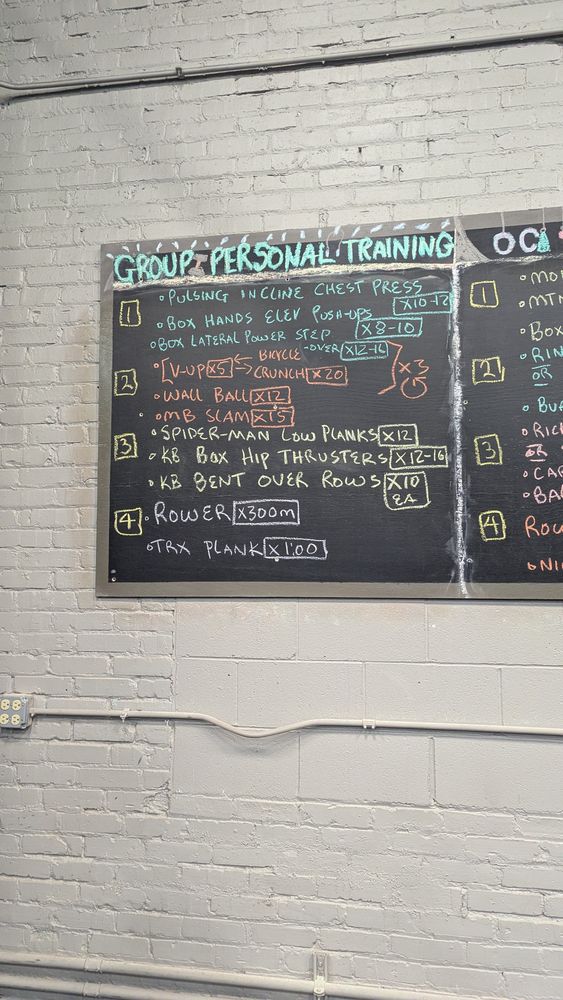 GROUP PERSONAL TRAINING
1
• PULSING INCLINE CHEST PRESS X10-12
• BOX HANDS ELEV PUSH-UPS X8-10
• BOX LATERAL POWER STEP -OVER X12-16
2
• [V-UP X5 BICYCLE CRUNCH X20
• WALL BALL X12
• MB SLAM X15
x3
3
• SPIDER-MAN LOW PLANKS X12
• KB BOX HIP THRUSTERS X12-16
• KB BENT OVER ROWS X10 EA
4
• ROWER X300m
• TRX PLANK X1:00
OC
1
• MTN
• BOX
2
OR
3
OR
4
ROW